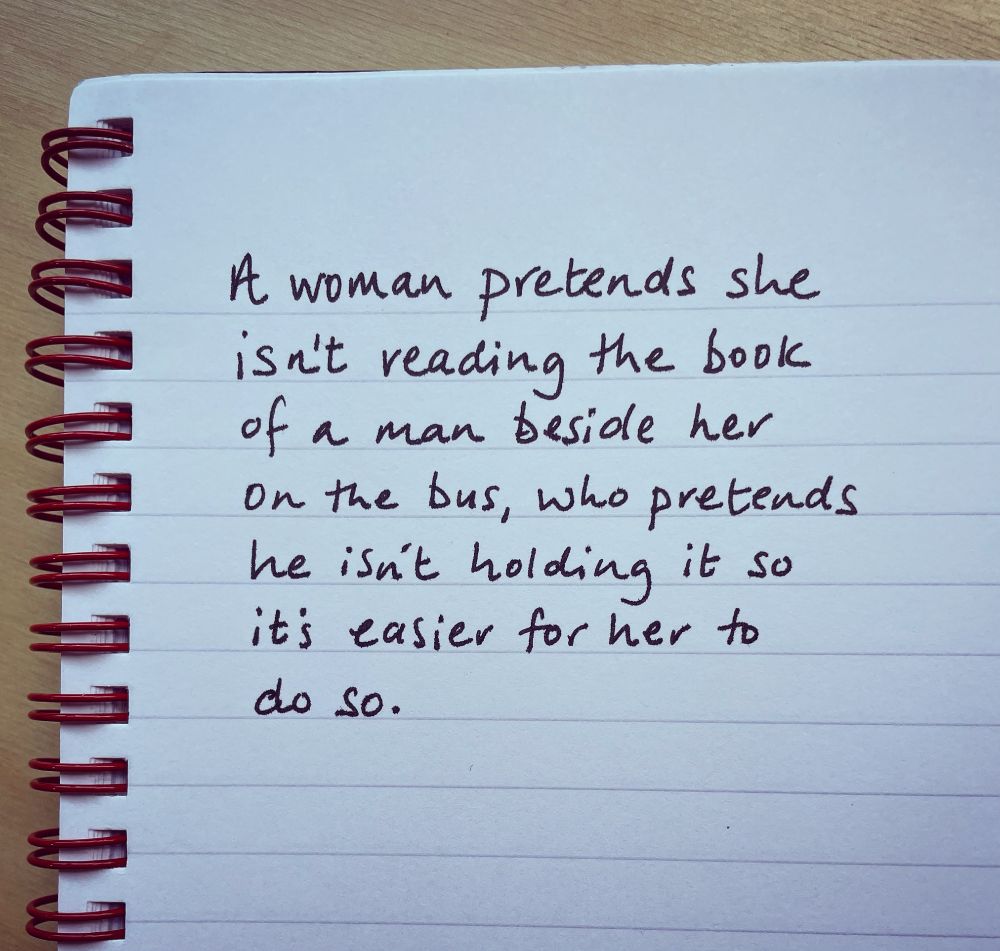 A woman pretends she
isn't reading the book
of a man beside her
on the bus, who pretends
he isn't holding it so
it's easier for her to
do so.